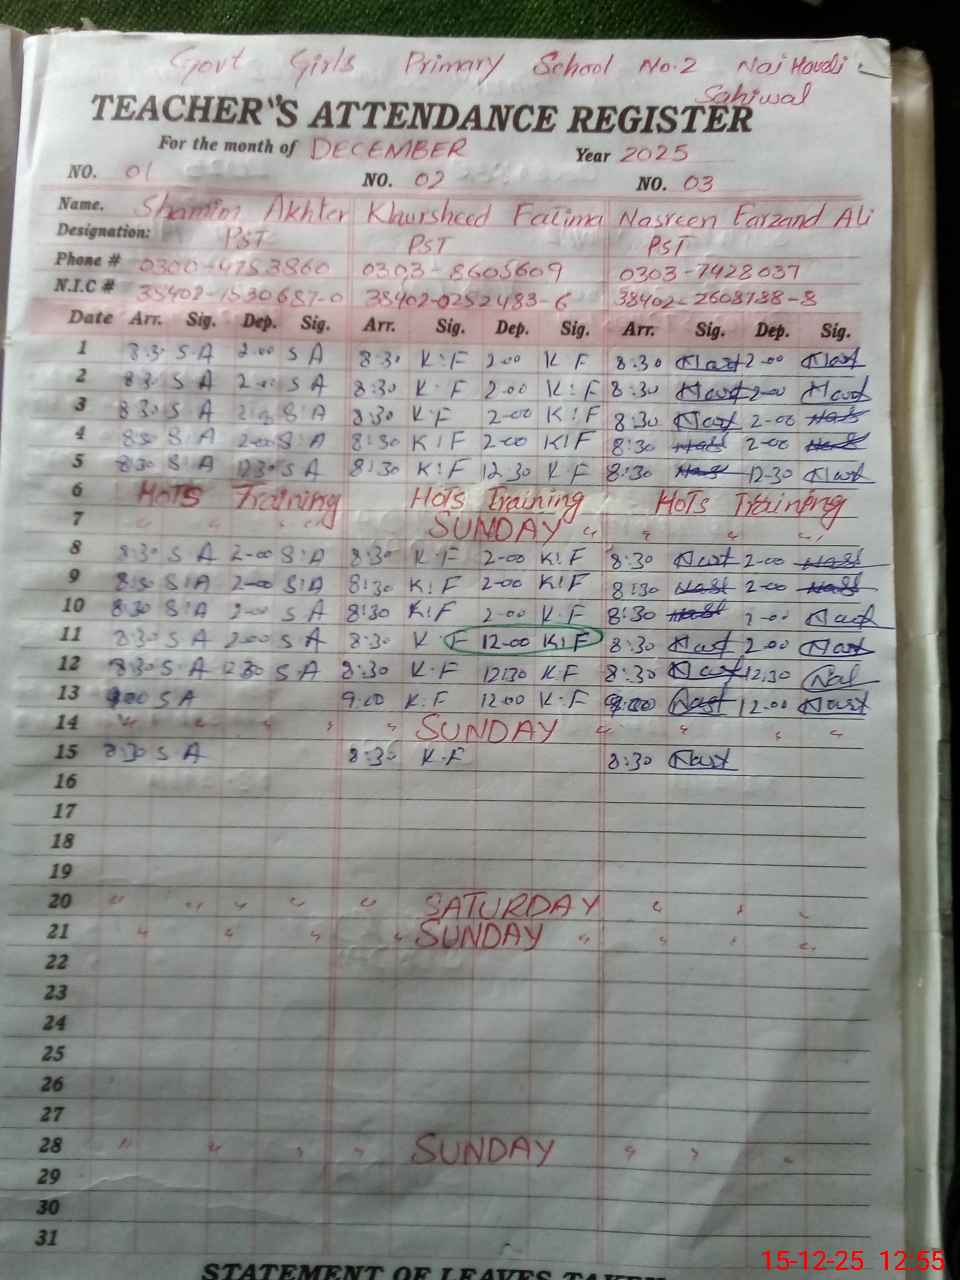 Govt Girls Primary School No.2 Naj Havali
Sahiwal
TEACHER'S ATTENDANCE REGISTER
For the month of DECEMBER Year 2025
NO. 01 NO. 02 NO. 03
Name. Shamim Akhter Khursheed Fatima Nasreen Farzand Ali
Designation: PST PST PST
Phone # 0300-4753860 0303-8605609 0303-7428037
N.I.C # 38402-1530687-0 38402-0252483-6 38402-2608738-8
Date Arr. Sig. Dep. Sig. Arr. Sig. Dep. Sig. Arr. Sig. Dep. Sig.
1 8:30 S A 2-00 S A 8:30 K:F 2-00 K F 8:30 2-00
2 8:30 S A 2-00 S A 8:30 K:F 2-00 K:F 8:30 2-00
3 8:30 S A 2-00 S:A 8:30 K:F 2-00 K:F 8:30 2-00
4 8:30 S:A 2-00 S:A 8:30 K:F 2-00 K:F 8:30 2-00
5 8:30 S:A 12:30 S A 8:30 K:F 12.30 K F 8:30 12-30
6 HOTS Training HOTS Training HOTS Training
7 " " " " SUNDAY " " " "
8 8:30 S A 2-00 S:A 8:30 K:F 2-00 K:F 8:30 2-00
9 8:30 S:A 2-00 S:A 8:30 K:F 2-00 K:F 8:30 2-00
10 8:30 S:A 2-00 S A 8:30 K:F 2-00 K.F 8:30 2-00
11 8:30 S A 2:00 S A 8:30 K F 12-00 K:F 8:30 2-00
12 8:30 S A 12:30 S A 8:30 K.F 12:30 K F 8:30 12,30
13 9:00 S A 9:00 K.F 12:00 K.F 9:00 12-00
14 " " " " " SUNDAY " " " "
15 8:30 S A 8:30 K.F 8:30
16
17
18
19
20 " " " " " SATURDAY " " "
21 " " " " SUNDAY " " " "
22
23
24
25
26
27
28 " " " " SUNDAY " " "
29
30
31
STATEMENT OF LEAVES TAKEN
15-12-25 12:55